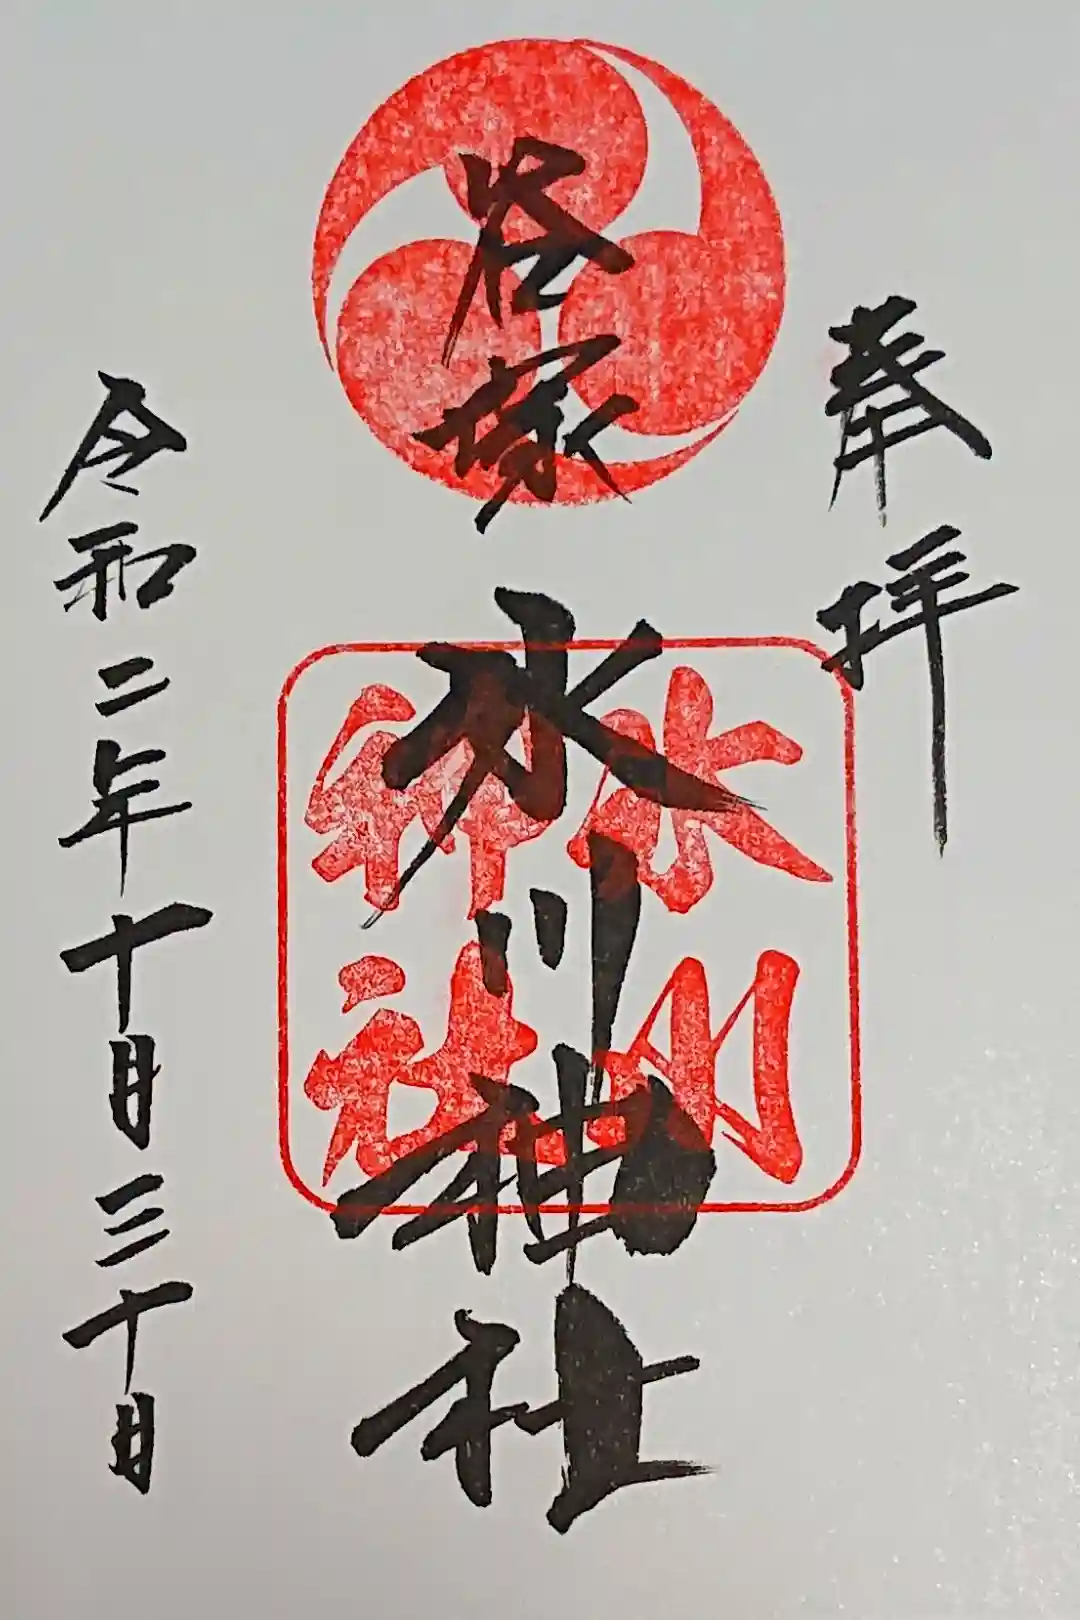 奉拝
谷塚
氷川神社
氷川
神社
令和二年十月三十日